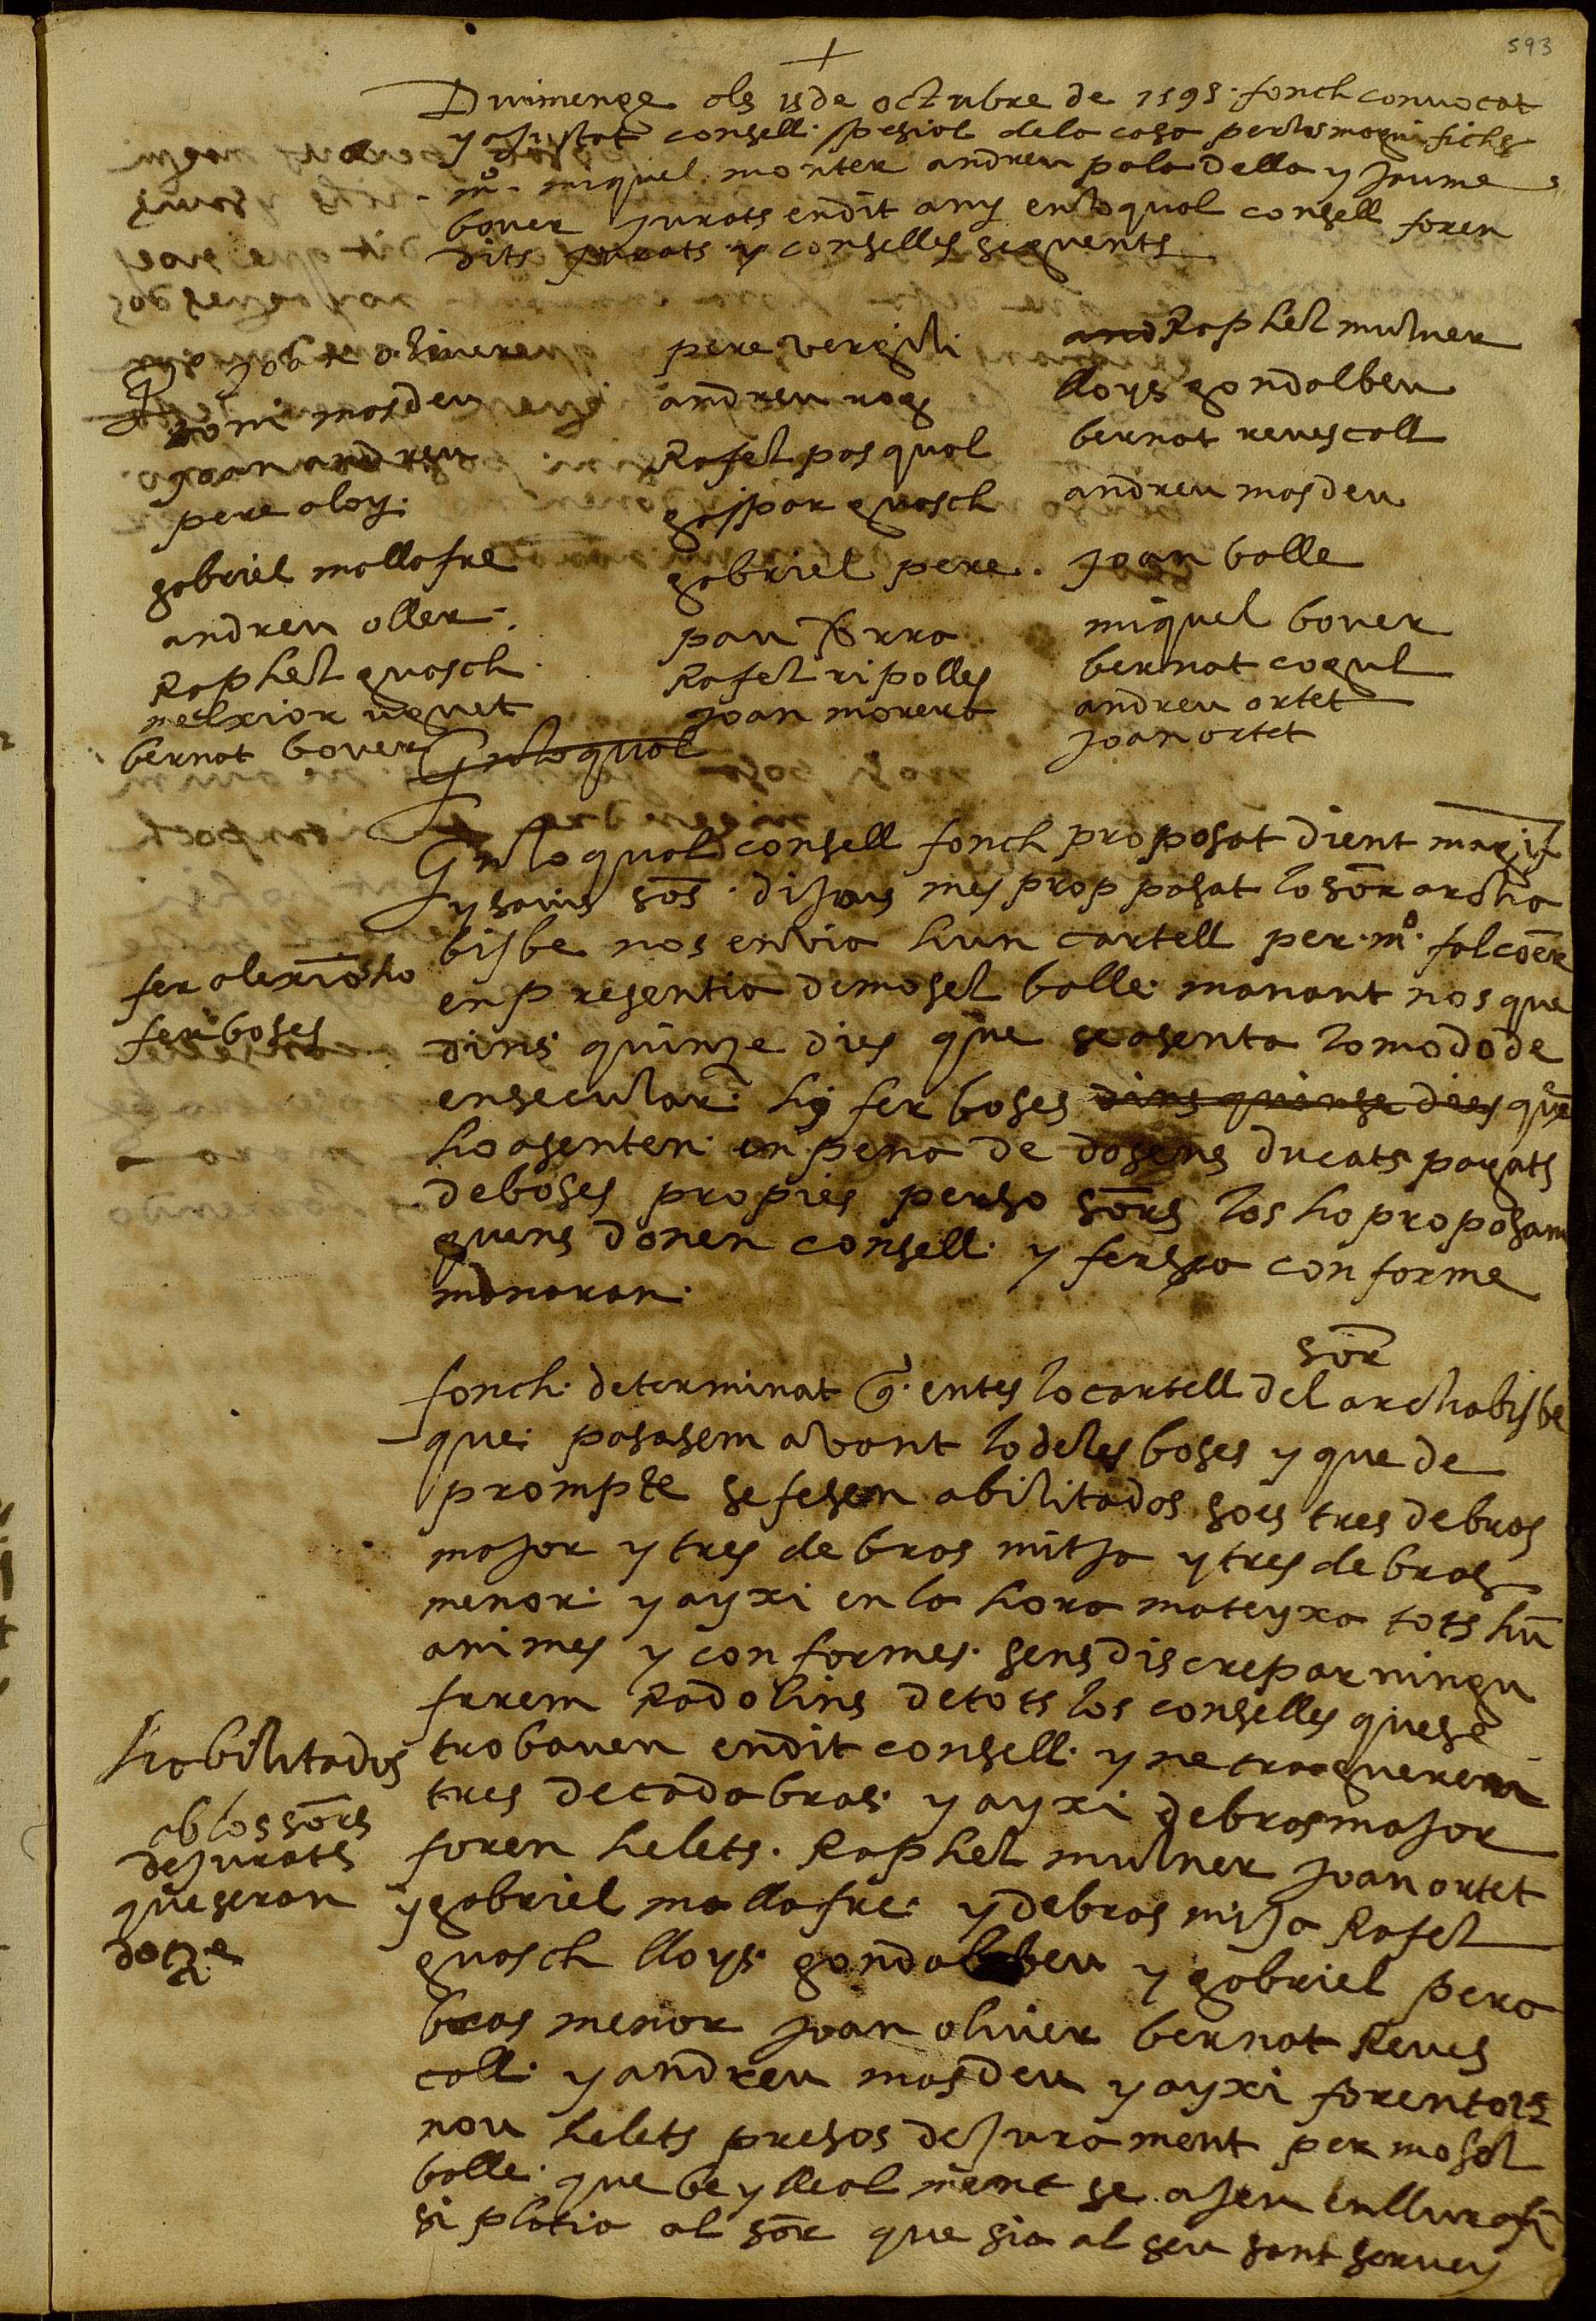 593
+
Diumenge als 15 de octubre de 1595 fonch convocat
y aJustat consell spesial dela casa perlos magnifichs
mº miquel monter andreu pala Della y Jaume
bover Jurats endit any enloqual consell foren
dits Jurats y conselles seguents
Joan oliver
pere vergili
and Raphel mulner
toni masdeu
andreu roig
lloys gondalbeu
Joan andreu
Rafel pasqual
bernat revescoll
pere aloy
gaspar guasch
andreu masdeu
gabriel mallafre
gabriel pere
Joan balle
andreu oller
pau serra
miquel bover
Raphel guasch
Rafel ripolles
bernat cogul
melxior uguet
Joan morera
andreu ortet
bernat bover
Enloqual
Joan ortet
Enloqual consell fonch proposat dient magif
y savis sors diJous mes prop pasat lo sor archa
bisbe nos envia hun cartell per mº falconer
enpresentia demosel balle manant nos que
fer alextio ho
fer boses
dins quinze dies que seasenta lomodo de
ensecular hy fer boses dins quinse dies que
hoasenten en pena de dosens ducats pagats
deboses propies perso sors los ho proposam
quens donen consell y fersa conforme
manaran
fonch determinat q entes lo cartell del sor archabisbe
que pasasem avant lo deles boses y que de
prompte se fesem abilitados soes tres debras
maJor y tres de bras mitJa y tres de bras
menor y ayxi en la hora mateyxa tots hu
animes y conformes sens discrepar ningu
farem Radolins detots los conselles quese
habilitados
ab los sors
deJurats
que seran
dotze
trobaven endit consell y ne traguerem
tres decada bras y ayxi debras maJor
foren helets Raphel mulner Joan ortet
y gabriel mallafre y debras miJa Rafel
guasch lloys gondalbeu y gabriel pera
bras menor Joan oliver bernat Reves
coll y andreu masdeu y ayxi foren tots
nou helets presos deJurament per mosel
balle que be y lleal ment se aJen enllurofi
si platia al sor que sia al seu sant servey